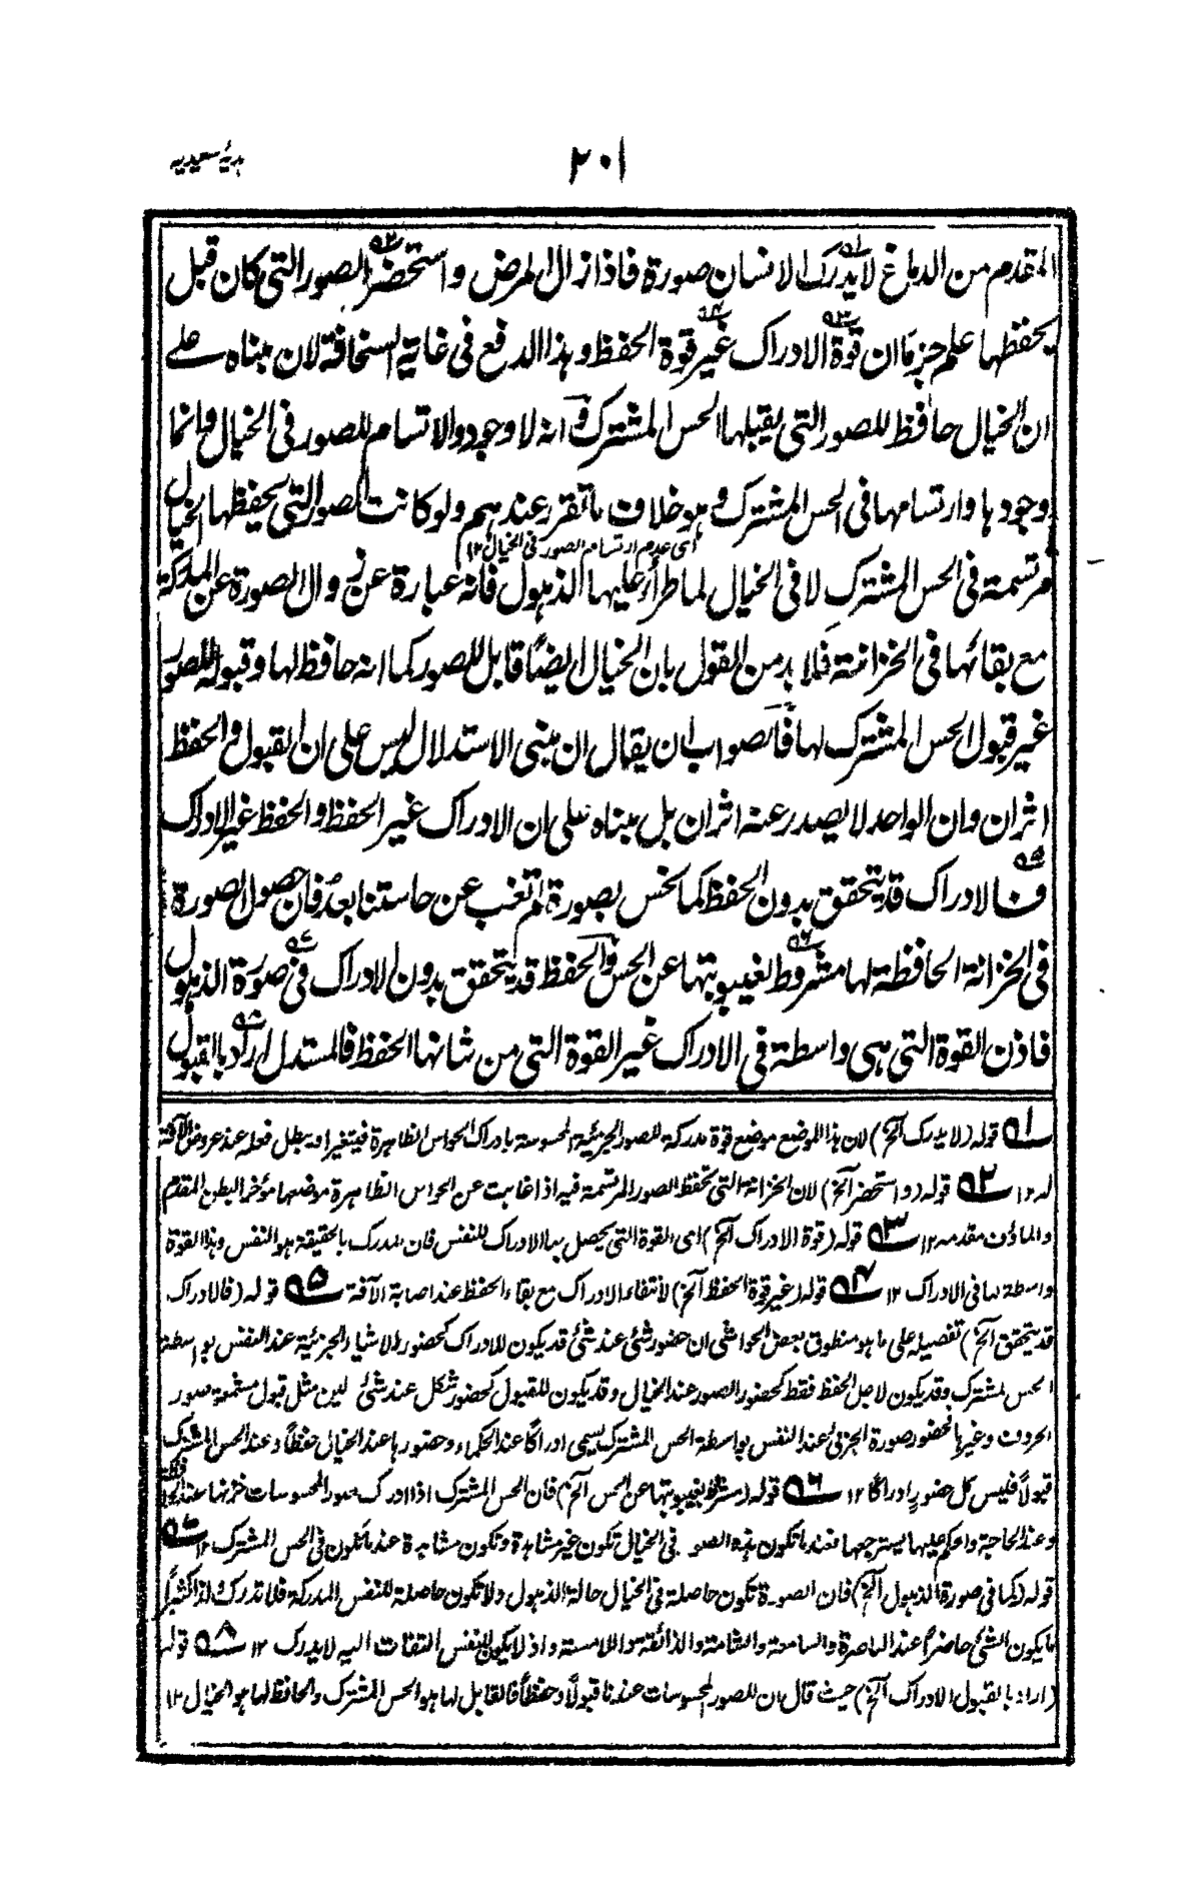 ہدیۂ سعیدیہ
٢٠١
المقدم من الدماغ لا يدرك الانسان صورة فاذا زال المرض واستحضر الصور التى كان قبل
يحفظها علم جزما ان قوة الادراك غير قوة الحفظ وهذا الدفع فى غاية السخافة لان مبناه على
ان الخيال حافظ للصور التى يقبلها الحس المشترك وانه لا وجود والارتسام للصور فى الخيال وانما
وجودها وارتسامها فى الحس المشترك وهو خلاف ما تقرر عندهم ولو كانت الصور التى يحفظها الخيال
اى عدم ارتسام الصور فى الخيال ١٢
مرتسمة فى الحس المشترك لا فى الخيال لما طرأ عليها الذهول فانه عبارة عن زوال الصورة عن المدركة
مع بقائها فى الخزانة فلا بد من القول بان الخيال ايضًا قابل للصور كما انه حافظ لها وقبوله للصور
غير قبول الحس المشترك لها فالصواب ان يقال ان مبنى الاستدلال ليس على ان القبول والحفظ
اثران وان الواحد لا يصدر عنه اثران بل مبناه على ان الادراك غير الحفظ والحفظ غير الادراك
فالادراك قد يتحقق بدون الحفظ كما نحس بصورة لم تغب عن حاستنا بعد فان حصول الصورة
فى الخزانة الحافظة لها مشروط بغيبوبتها عن الحس والحفظ قد يتحقق بدون الادراك فى صورة الذهول
فاذن القوة التى هى واسطة فى الادراك غير القوة التى من شانها الحفظ فالمستدل اراد بالقبول
٩١ قوله (لا يدرك آلخ) لان هذا الموضع موضع قوة مدركة للصور الجزئية المحسوسة بادراك الحواس الظاهرة فيتغير او يبطل فعله عند عروض الآفة
له ١٢ ٩٢ قوله (واستحضر آلخ) لان الخزانة التى تحفظ الصور المرتسمة فيه اذا غابت عن الحواس الظاهرة موضعها مؤخر البطن المقدم
والماؤف مقدمه ١٢ ٩٣ قوله (قوة الادراك آلخ) اى القوة التى يحصل بها الادراك للنفس فان المدرك بالحقيقة هو النفس وهذا القوة
واسطة لها فى الادراك ١٢ ٩٤ قوله (غير قوة الحفظ آلخ) لانتفاء الادراك مع بقاء الحفظ عند اصابة الآفة ٩٥ قوله (فالادراك
قد يتحقق آلخ) تفصيله على ما هو منطوق بعض الحواشى ان حضور شئ عند شئ قد يكون للادراك كحضور الاشياء الجزئية عند النفس بواسطة
الحس المشترك وقد يكون لاجل الحفظ فقط كحضور الصور عند الخيال وقد يكون للقبول كحضور شكل عند شئ لين مثل قبول مشمعة صور
الحروف وغيرها فحضور صورة الجزئى عند النفس بواسطة الحس المشترك يسمى ادراكا عند الحكماء وحضورها عند الخيال حفظاً وعند الحس المشترك
قبولاً فليس كل حضور ادراكا ١٢ ٩٦ قوله (مشروط بغيبوبتها عن الحس آلخ) فان الحس المشترك اذا ادرك صور المحسوسات خزنها عند
وعند الحاجة والحكم عليها يسترجعها فعند ما تكون هذه الصور فى الخيال تكون غير مشاهدة وتكون مشاهدة عند ما تكون فى الحس المشترك ١٢ ٩٧
قوله (كما فى صورة الذهول آلخ) فان الصورة تكون حاصلة فى الخيال حالة الذهول ولا تكون حاصلة للنفس المدركة فلا تدرك ولذا كثيراً
ما يكون الشئ حاضراً عند الباصرة والسامعة والشامة والذائقة واللامسة واذ لا يكون للنفس التفات اليه لا يدرك ١٢ ٩٨ قوله
(اراد بالقبول الادراك آلخ) حيث قال ان للصور المحسوسات عندنا قبولاً وحفظاً فالقابل لها هو الحس المشترك والحافظ لها هو الخيال ١٢